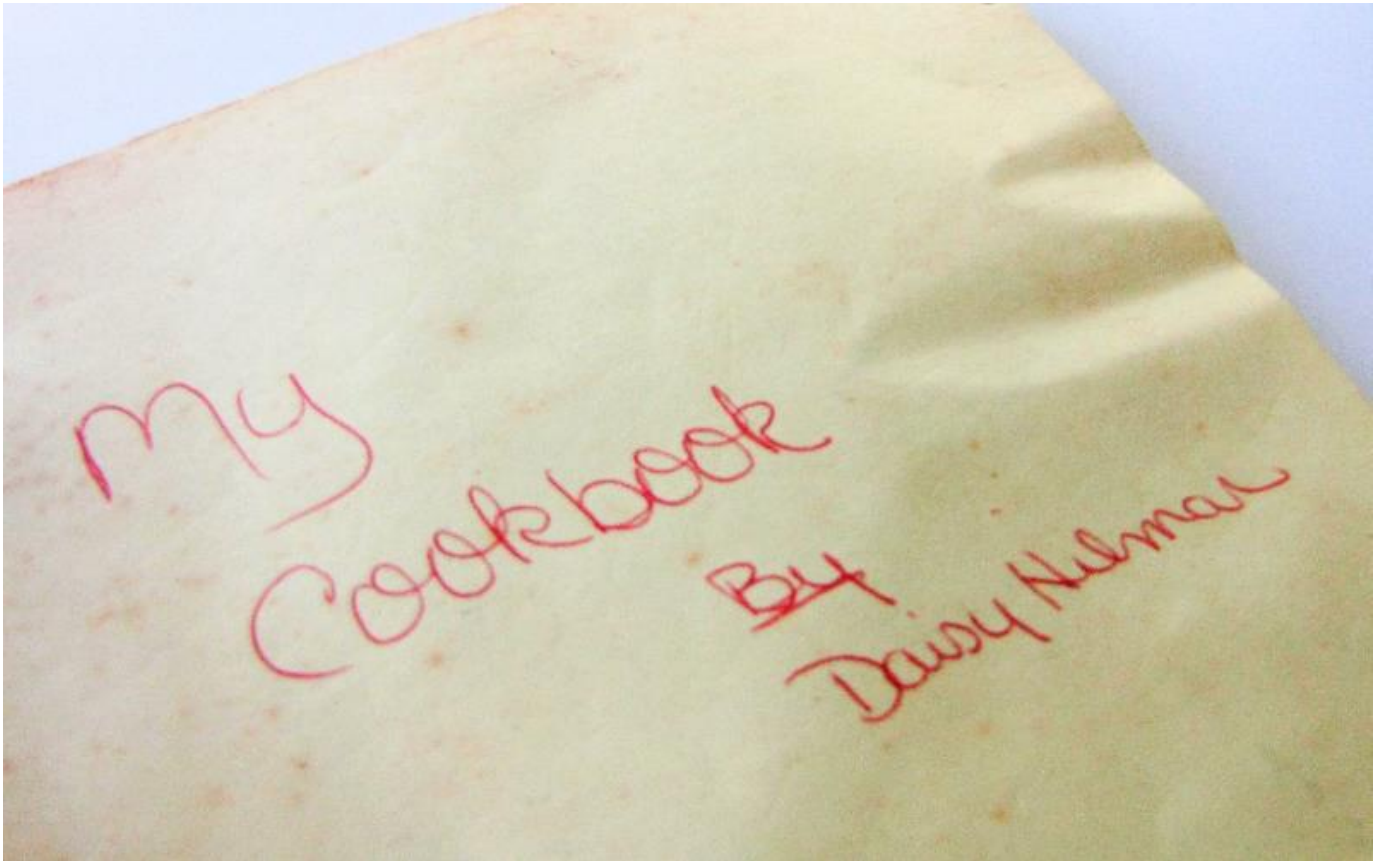 My
Cookbook
By
Daisy Hilmar